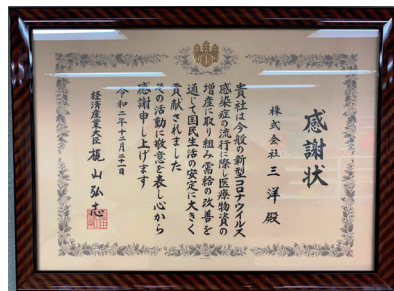 感謝状
株式会社 三洋 殿
貴社は今般の新型コロナウイルス
感染症の流行に際し医療物資の
増産に取り組み需給の改善を
通じて国民生活の安定に大きく
貢献されました
その活動に敬意を表し心から
感謝申し上げます
令和二年十二月二十一日
経済産業大臣 梶山弘志